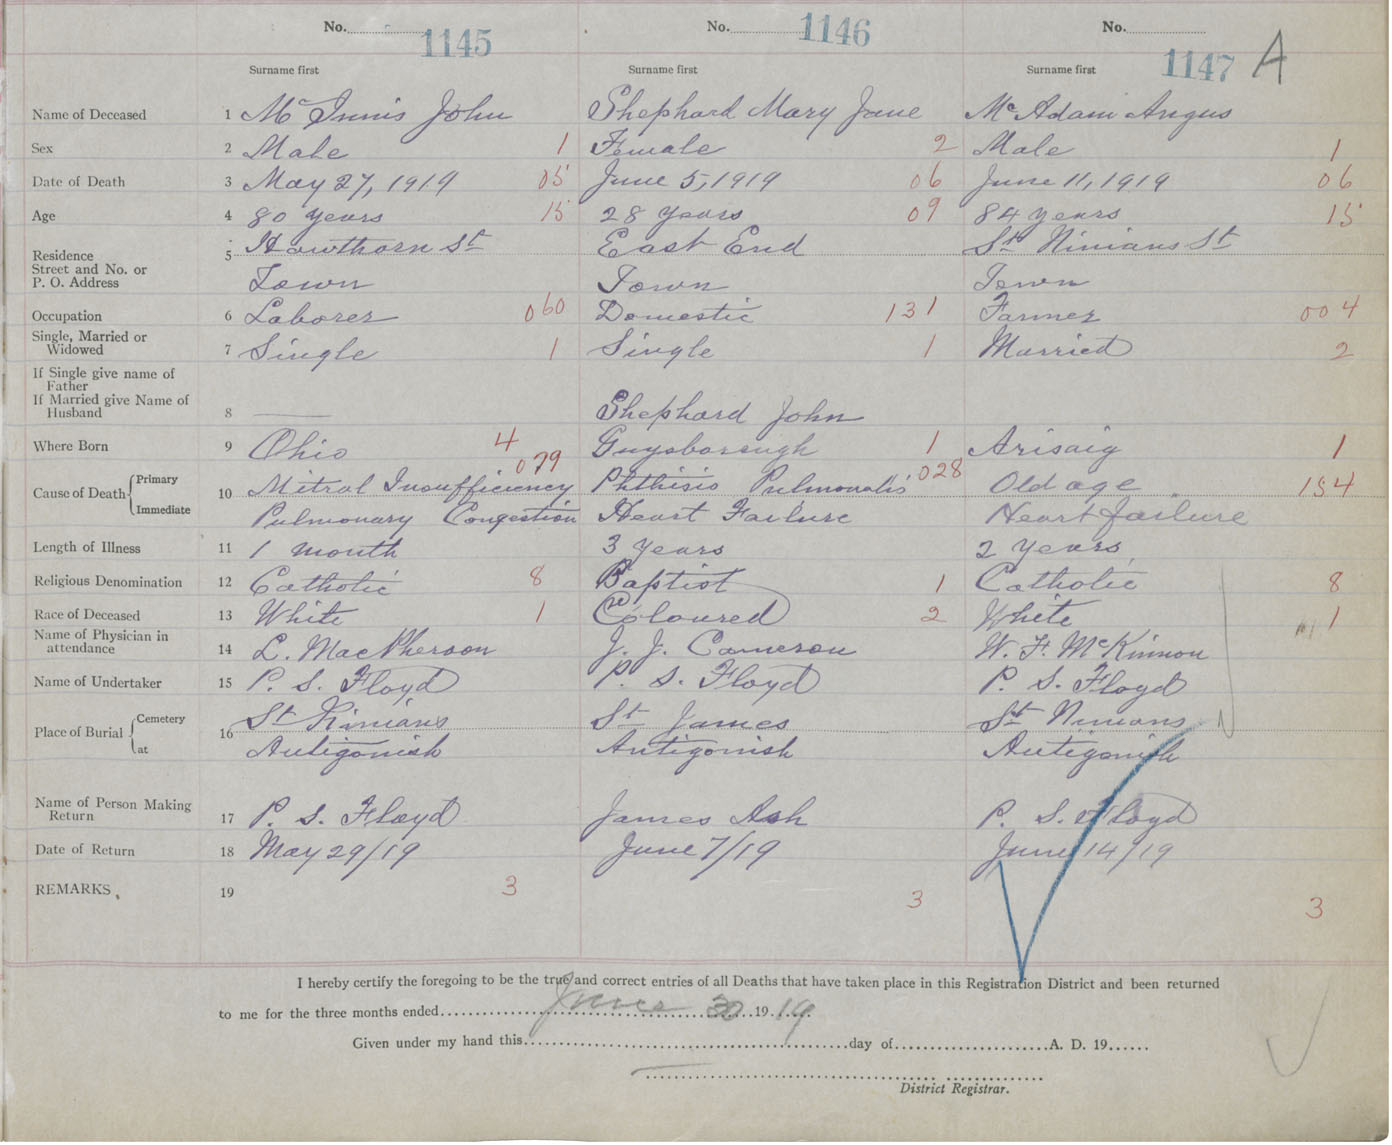 No. 1145 No. 1146 No. 1147 A
Surname first Surname first Surname first
Name of Deceased 1 McInnis John Shephard Mary Jane McAdam Angus
Sex 2 Male 1 Female 2 Male 1
Date of Death 3 May 27, 1919 05 June 5, 1919 06 June 11, 1919 06
Age 4 80 years 15 28 years 09 84 years 15
Residence 5 Hawthorn St East End St Ninians St
Street and No. or
P. O. Address Town Town Town
Occupation 6 Laborer 060 Domestic 131 Farmer 004
Single, Married or
Widowed 7 Single 1 Single 1 Married 2
If Single give name of
Father
If Married give Name of
Husband 8 —— Shephard John
Where Born 9 Ohio 4 Guysborough 1 Arisaig 1
079 028
Cause of Death { Primary 10 Mitral Insufficiency Phthisis Pulmonalis Old age 154
Immediate Pulmonary Congestion Heart Failure Heart failure
Length of Illness 11 1 month 3 years 2 years
Religious Denomination 12 Catholic 8 Baptist 1 Catholic 8
Race of Deceased 13 White 1 Coloured 2 White 1
Name of Physician in
attendance 14 L. MacPherson J. J. Cameron W. F. McKinnon
Name of Undertaker 15 P. S. Floyd P. S. Floyd P. S. Floyd
Place of Burial { Cemetery 16 St Ninians St James St Ninians
at Antigonish Antigonish Antigonish
Name of Person Making
Return 17 P. S. Floyd James Ash P. S. Floyd
Date of Return 18 May 29/19 June 7/19 June 14/19
REMARKS. 19 3 3 3
I hereby certify the foregoing to be the true and correct entries of all Deaths that have taken place in this Registration District and been returned
to me for the three months ended June 30 1919
Given under my hand this day of A. D. 19
District Registrar.